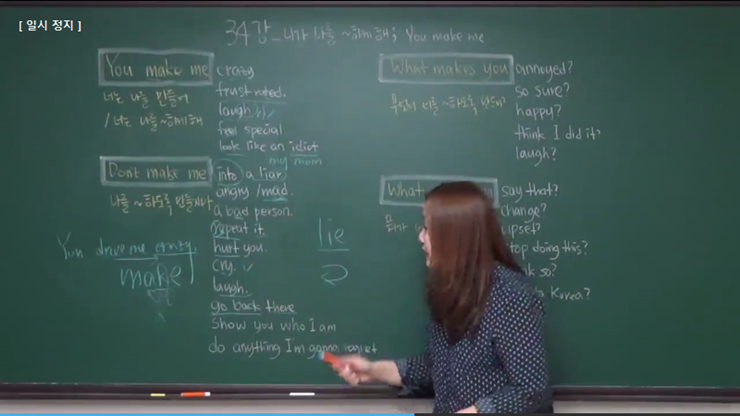 [ 일시 정지 ]
34강_너가 나를 ~하게 해; You make me
You make me
crazy
frustrated.
laugh
feel special
look like an idiot
너는 나를 만들어
/ 너는 나를 ~하게 해
my mom
Dont make me
into a liar
angry / mad.
a bad person.
repeat it.
hurt you.
cry.
laugh.
go back there
show you who I am
do anything I'm gonna regret
나를 ~하도록 만들지마
You drive me crazy.
make
lie
What makes you
annoyed?
so sure?
happy?
think I did it?
laugh?
무엇이 너를 ~하도록 만들어?
What
say that?
change?
upset?
stop doing this?
so?
Korea?